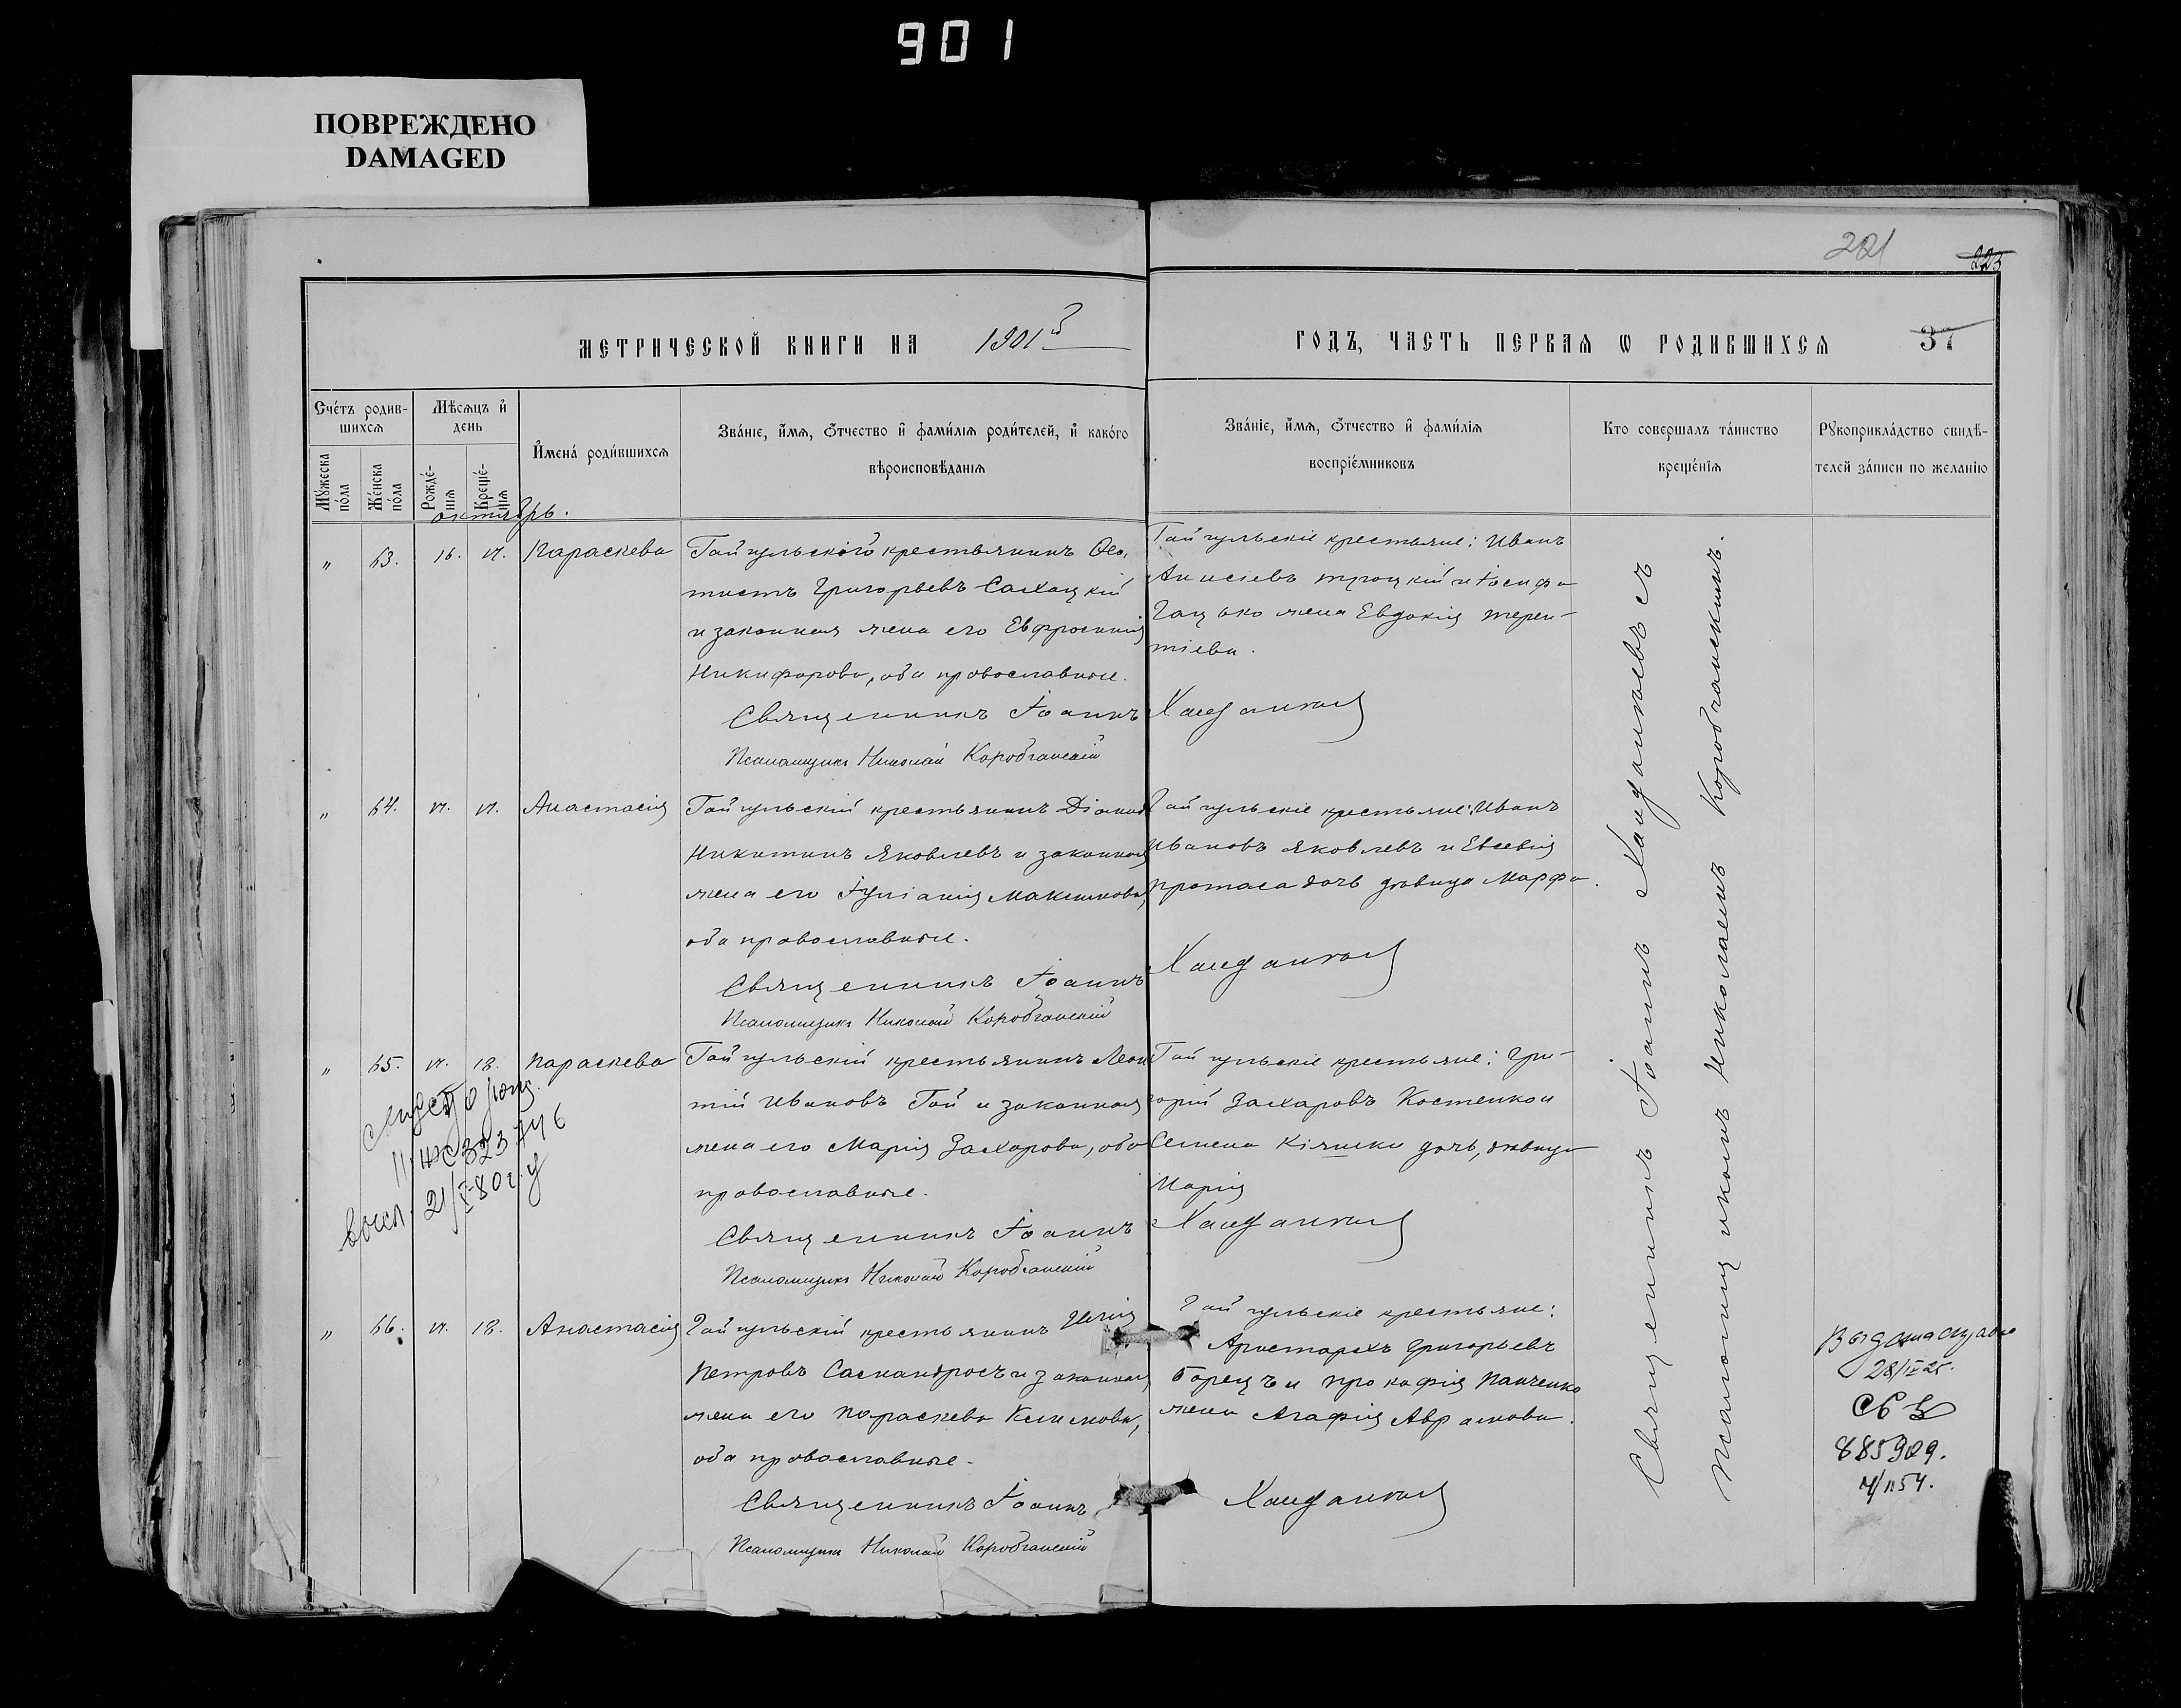 901
ПОВРЕЖДЕНО
DAMAGED
221
223
МЕТРИЧЕСКОЙ КНИГИ НА 1901й
ГОДЪ, ЧАСТЬ ПЕРВАЯ Ѡ РОДИВШИХСЯ
37
Счетъ родив-
шихсѧ
Мужеска пола
Женска пола
Мѣсѧцъ и день
Рожде-
нїѧ
Креще-
нїѧ
Имена родившихсѧ
Званїе, имѧ, ѻтчество и фамилїѧ родителей, и какого
вѣроисповѣданїѧ
Званїе, имѧ, ѻтчество и фамилїѧ
воспрїемниковъ
Кто совершалъ таинство
крещенїѧ
Рꙋкоприкладство свидѣ-
телей записи по желанїю
октябрь.
„ 63. 16. 17. Параскева
Гайгульскій крестьянинъ Ѳео-
тистъ Григорьевъ Сахацкій
и законная жена его Евфросинія
Никифорова, оба православные.
Священникъ Іоаннъ
Псаломщикъ Николай Коробчанскій
Гайгульскіе крестьяне: Иванъ
троцкій и Іосифа
Гацько жена Евдокія терен-
тіева.
„ 64. 17. 17. Анастасія
Гайгульскій крестьянинъ
Никитинъ Яковлевъ и законная
жена его Іуліанія Максимова,
оба православные.
Священникъ Іоаннъ
Псаломщикъ Николай Коробчанскій
Гайгульскіе крестьяне: Иванъ
Ивановъ Яковлевъ и Евсевія
протаса дочь дѣвица Марфа.
„ 65. 17. 18. Параскева
Гайгульскій крестьянинъ Леон
тій Ивановъ Гай и законная
жена его Марія Захарова, оба
православные.
Священникъ Іоаннъ
Псаломщикъ Николай Коробчанскій
Гайгульскіе крестьяне: Гри-
горій Захаровъ Костенко и
Семена дочь, дѣвица
Марія
323746
21/X-80г.
„ 66. 17. 18. Анастасія
Гайгульскій крестьянинъ Илія
Петровъ и законная
жена его Параскева Климова,
оба православные.
Священникъ Іоаннъ
Псаломщикъ Николай Коробчанскій
Гайгульскіе крестьяне:
Аристархъ Григорьевъ
Борецъ и прокофія Панченко
жена Агафія Аврамова.
Священникъ Іоаннъ съ
Псаломщикомъ Николаемъ Коробчанскимъ.
28/IV 25.
885909.